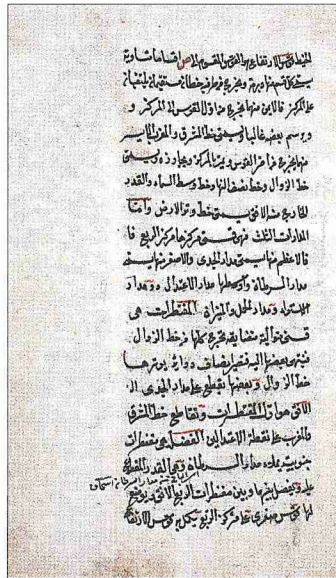 الخيط وقوس الارتفاع هو القوس المقسوم الى ص اقساما متساوية
بين كل قسم منها ويخرج من طرفيه خطان مستقيمان يلتقيان
على المركز فالايمن منهما يخرج من اول القوس الى المركز و
يرسم بعضه غالبا ويسمى خط المشرق والمغرب والايسر
منهما يخرج من اخر القوس ويمر بالمركز ويجاوزه يسمى
خط الزوال وخط نصف النهار وخط وسط السماء والقدر
الخارج منه الافق يسمى خط وتد الارض واما
المدارات الثلث فهي قسى مركزها مركز الربع فا
فالاعظم منها يسمى مدار الجدى والاصغر منها يسمى
مدار السرطان واوسطها مدار الاعتدال ومدار
الاستواء ومدار الحمل والميزان المقنطرات هى
قسى متوالية متضايقة مخرج كلها من خط الزوال
فينتهى بعضها اليه فتصير انصاف دوائر يوترها
خط الزوال وبعضها يقطع على مدار الجدى الى
الافق هو اول المقنطرات وتقاطع خط المشرق
والمغرب على نقطة الاعتدالين الفضلة هى مقنطرات
جنوبية مدار السرطان وهى القدر الفضلة
عليه ويفصل بينها وبين مقنطرات الربع الافق ويوضع
لها قوس صغرى على مركز الربع يكمل بقوس الارتفاع